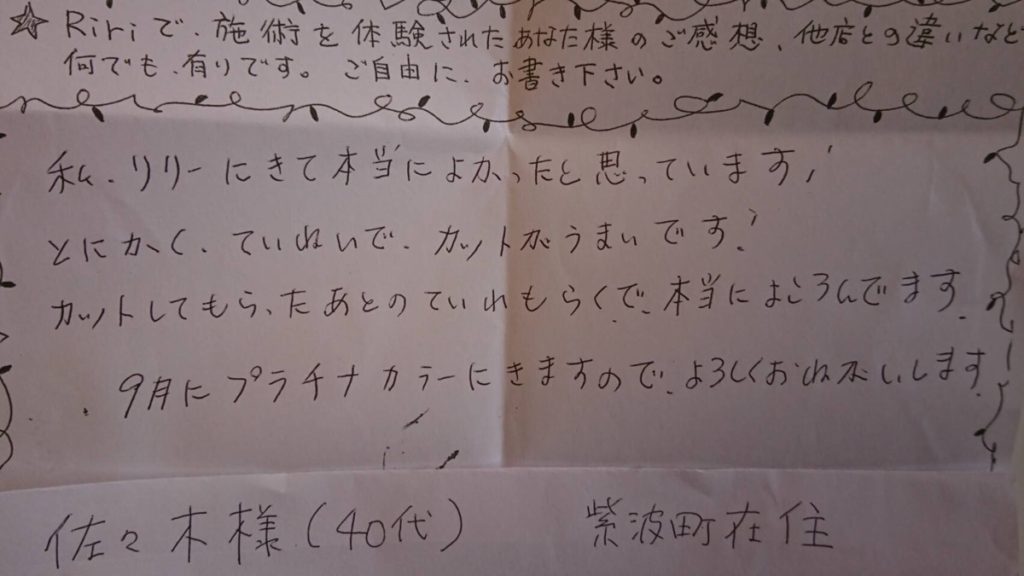 ☆ Ririで、施術を体験されたあなた様のご感想、他店との違いなど
何でも、有りです。ご自由に、お書き下さい。
私、リリーにきて本当によかったと思っています!
とにかく、ていねいで、カットがうまいです!
カットしてもらったあとのていれもらくで、本当によころんでます。
9月にプラチナカラーにきますので、よろしくおねがいします
佐々木様(40代) 紫波町在住